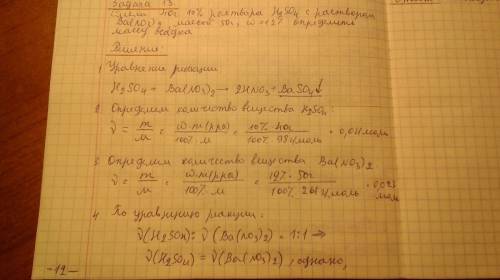 Задача 13.
40г 10% раствора H₂SO₄ с раствором
Ba(NO₃)₂ массой 50г, определить
массу осадка
Решение:
1. Уравнение реакции
H₂SO₄ + Ba(NO₃)₂ → 2HNO₃ + BaSO₄↓
2. Определяем количество вещества H₂SO₄:
ν = m/M = ω·m(р-ра)/100%·M = 10%·40г/100%·98г/моль = 0,041моль
3. Определяем количество вещества Ba(NO₃)₂
ν = m/M = ω·m(р-ра)/100%·M = 50г/100%
моль
4. По уравнению реакции:
ν(H₂SO₄) : ν(Ba(NO₃)₂) = 1:1 ⇒
ν(H₂SO₄) = ν(Ba(NO₃)₂), однако,
-12-